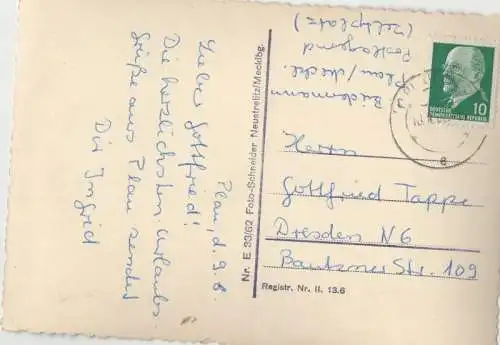 Plau, d. 9.8.
Lieber Gottfried!
Die herzlichsten Urlaubs-
grüße aus Plau sendet
Dir Ingrid
Nr. E 33/62 Foto-Schneider Neustrelitz/Mecklbg.
Registr. Nr. II. 13.6
Büdemann
Plau/Meckl.
Postlagernd
(Zeltplatz)
10
DEUTSCHE
DEMOKRATISCHE REPUBLIK
Herrn
Gottfried Tappe
Dresden N6
Bautzner Str. 109